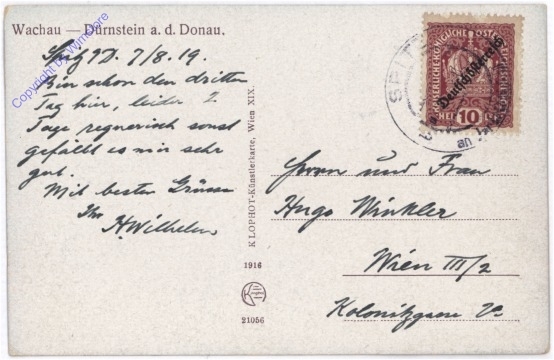 Wachau — Dürnstein a. d. Donau.
Spitz a/D. 7/8. 19.
Bin schon den dritten
Tag hier, leider 2
Tage regnerisch sonst
gefällt es mir sehr
gut.
Mit besten Grüssen
Ihr
H. Wilhelm
Copyright by Wilmbore
KLOPHOT-Künstlerkarte, Wien XIX.
1916
21056
SPITZ
an der
Deutschösterreich
KAISERLICHE KÖNIGLICHE ÖSTERREICHISCHE POST
HELLER 10
Herrn und Frau
Hugo Winkler
Wien III/2
Kolonitzgasse